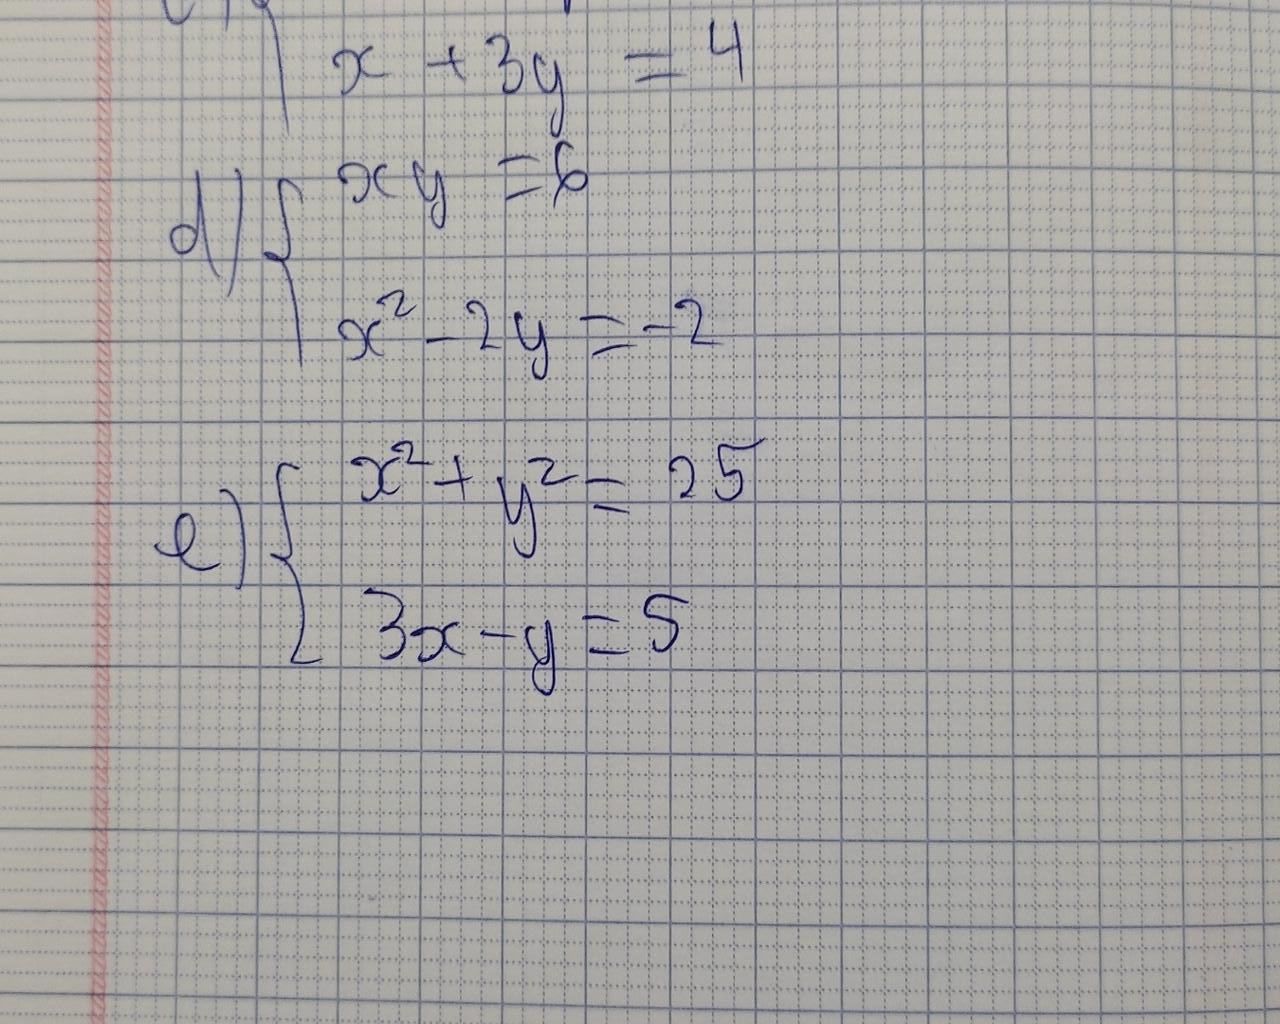 x + 3y = 4
d) { xy = 6
x² - 2y = -2
e) { x² + y² = 25
3x - y = 5